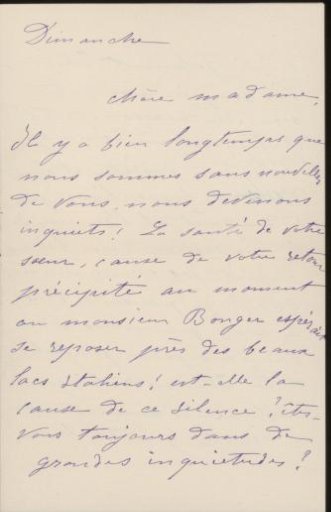 Dimanche
Chère madame,
Il y a bien longtemps que
nous sommes sans nouvelles
de vous, nous devenons
inquiets! La santé de votre
sœur, cause de votre retour
précipité au moment
ou monsieur Bonger espérait
se reposer près des beaux
lacs italiens! est-elle la
cause de ce silence? êtes-
vous toujours dans de
grandes inquietudes?